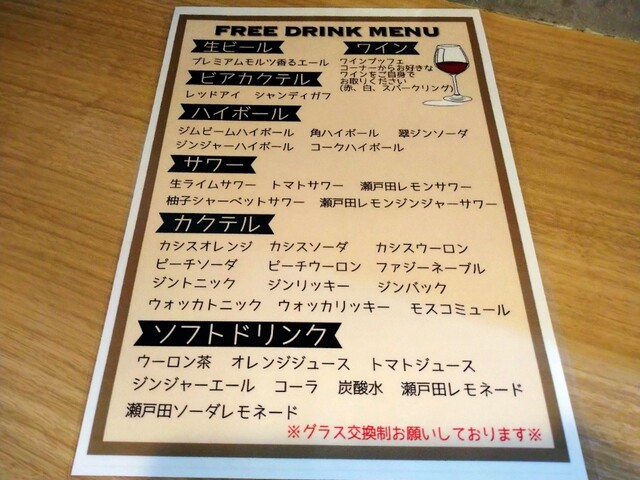 FREE DRINK MENU
生ビール
プレミアムモルツ香るエール
ワイン
ワインブッフェ
コーナーからお好きな
ワインをご自身で
お取りください
(赤、白、スパークリング)
ビアカクテル
レッドアイ シャンディガフ
ハイボール
ジムビームハイボール 角ハイボール 翠ジンソーダ
ジンジャーハイボール コークハイボール
サワー
生ライムサワー トマトサワー 瀬戸田レモンサワー
柚子シャーベットサワー 瀬戸田レモンジンジャーサワー
カクテル
カシスオレンジ カシスソーダ カシスウーロン
ピーチソーダ ピーチウーロン ファジーネーブル
ジントニック ジンリッキー ジンバック
ウォッカトニック ウォッカリッキー モスコミュール
ソフトドリンク
ウーロン茶 オレンジジュース トマトジュース
ジンジャーエール コーラ 炭酸水 瀬戸田レモネード
瀬戸田ソーダレモネード
※グラス交換制お願いしております※